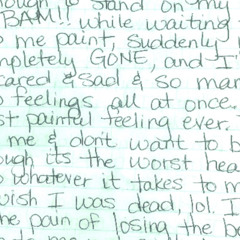 to stand on my
BAM!! while waiting
me paint, suddenly
GONE, and I'
& sad & so man
feelings all at once.
painful feeling ever.
me & don't want to b
its the worst hea
whatever it takes to m
wish I was dead, lol. I
pain of losing the b